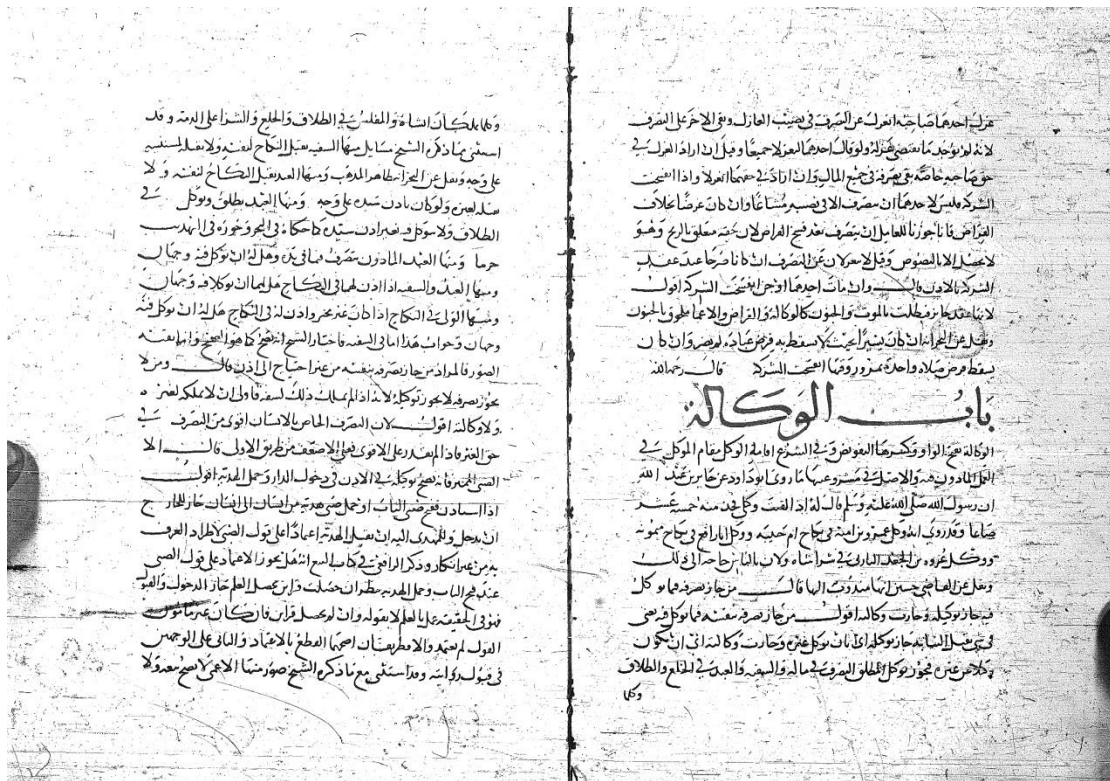 عزل احدهما صاحبه انعزل عن التصرف في نصيب العازل وبقي الاخر على التصرف
لانه لم يوجد ما يقتضي عزله ولو قال احدهما انعزلا جميعا وقيل ان اراد العزل في
حق صاحبه خاصة بقي تصرفه في جميع المال وان اراد في حقهما انعزلا واذا انفسخت
الشركة فليس لاحدهما ان يتصرف الا في نصيبه مشاعا وان كان عرضا بخلاف
القراض فانا جوزنا للعامل ان يتصرف بعد فسخ القراض لان حقه معلق بالربح وهو
لا يحصل الا بالنضوض وقيل لا ينعزلان عن التصرف ان كانا صرحا عند عقد
الشركة بالاذن قال وان مات احدهما او جن انفسخت الشركة اقول
لانها عقد جائز فبطلت بالموت والجنون كالوكالة والقراض والاغما ملحق بالجنون
ونقل عن البحر انه ان كان يسيرا بحيث لا يسقط به فرض عبادة لم يضر وان كان
يسقط فرض صلاة واحدة بمرور وقتها انفسخت الشركة قال رحمه الله
باب الوكالة
الوكالة بفتح الواو وكسرها التفويض وفي الشرع اقامة الوكيل مقام الموكل في
العمل الماذون فيه والاصل في مشروعيتها ما روى ابو داود عن جابر بن عبد الله
ان رسول الله صلى الله عليه وسلم قال له اذا لقيت وكيلي فخذ منه خمسة عشر
صاعا وقد روي انه وكل عمرو بن امية في نكاح ام حبيبة ووكل ابا رافع في نكاح ميمونة
ووكل عروة بن الجعد البارقي في شرا شاة ولان بالناس حاجة الى ذلك
ونقل عن القاضي حسين انها مندوب اليها قال من جاز تصرفه فيما يوكل
فيه جاز توكيله وجازت وكالته اقول من جاز تصرفه بنفسه فيما توكل فيه يعني
في شي يقبل النيابة جاز توكيله اي بان يوكل غيره وجازت وكالته اي ان يكون
وكيلا عن غيره فيجوز توكيل المطلق التصرف في ماله والسفيه والعبد في الخلع والطلاق
وكلما
وكلما يملكان انشاه والمفلس في الطلاق والخلع والشرا على الذمة وقد
استثنى مما ذكره الشيخ مسايل منها السفيه يقبل النكاح لنفسه ولا يقبله لغيره
على وجه ونقل عن البحر انه ظاهر المذهب ومنها العبد يقبل النكاح لنفسه ولا
يقبله لغيره ولو كان باذن سيده على وجه ومنها العبد يطلق ويوكل في
الطلاق ولا يتوكل فيه بغير اذن سيده كما حكاه في البحر وجوزه في المهذب
جزما ومنها العبد الماذون يتصرف فيما في يده وهل له ان يوكل فيه وجهان
ومنها العبد والسفيه اذا اذن لهما في النكاح هل لهما ان يوكلا فيه وجهان
ومنها الولي في النكاح اذا كان غير مجبر واذن له في النكاح هل له ان يوكل فيه
وجهان وجواب هذا اما في السفيه فاختار الشيخ انه يصح كما هو الصحيح واما بقية
الصور فالمراد من جاز تصرفه بنفسه من غير احتياج الى اذن قال ومن لا
يجوز تصرفه لا يجوز توكيله لانه اذا لم يملك ذلك لنفسه فاولى ان لا يملكه لغيره
ولا وكالته اقول لان التصرف الخاص بالانسان اقوى من التصرف في
حق الغير فاذا لم يقدر على الاقوى فعلى الاضعف من طريق الاولى قال الا
الصبي المميز فانه يصح توكيله في الاذن في دخول الدار وحمل الهدية اقول
اذا استاذن فيفتح صبي الباب او حمل صبي هدية من انسان الى انسان جاز للخارج
ان يدخل وللمهدى اليه ان يقبل الهدية اعتمادا على قول الصبي لاطراد العرف
به من غير انكار وذكر الرافعي في كتاب البيع انه هل يجوز الاعتماد على قول الصبي
عند فتح الباب وحمل الهدية ينظر ان حصلت قراين تحصل العلم جاز الدخول والقبول
فهو في الحقيقة عمل بالعلم لا بقوله وان لم تحصل قراين فان كان غير مامون
القول لم يعتمد والا فطريقان اصحهما القطع بالاعتماد والثاني على الوجهين
في قبول روايته وقد استثنى مع ما ذكره الشيخ صور منها الاعمى لا يصح بيعه ولا